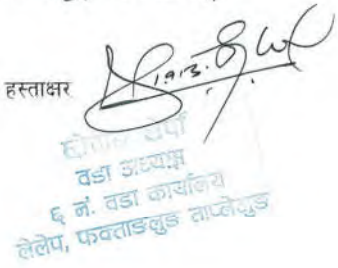 हस्ताक्षर
वडा अध्यक्ष
६ नं. वडा कार्यालय
लेलेप, फक्ताङलुङ ताप्लेजुङ